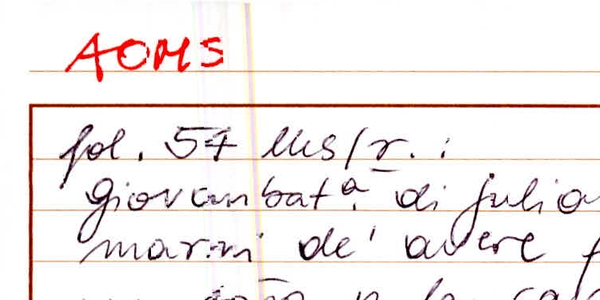 AOMS
fol. 57 Ms/r. :
giovanbatª. di julia
marini de' avere f